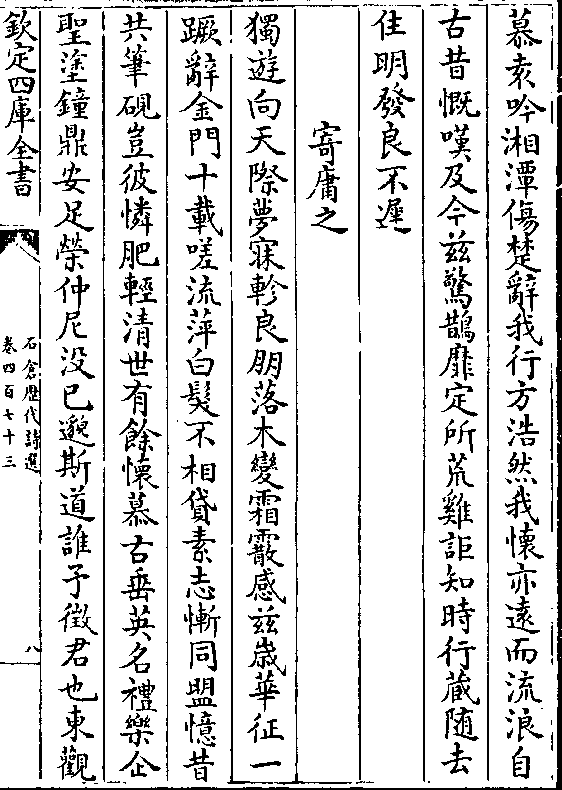 慕袁吟湘潭傷楚辭我行方浩然我懷亦遠而流浪自
古昔慨嘆及今兹驚鵲靡定所荒雞詎知時行蔵随去
住明發良不遲
寄庸之
獨遊向天際夢寐軫良朋落木變霜霰感兹嵗華征一
蹶辭金門十載嗟流萍白髮不相貸素志慚同盟憶昔
共筆硯豈彼憐肥輕清世有餘懷慕古垂英名禮樂企
聖塗鐘鼎安足榮仲尼没已邈斯道誰予徵君也東觀
欽定四庫全書
石倉歴代詩選
卷四百七十三
八